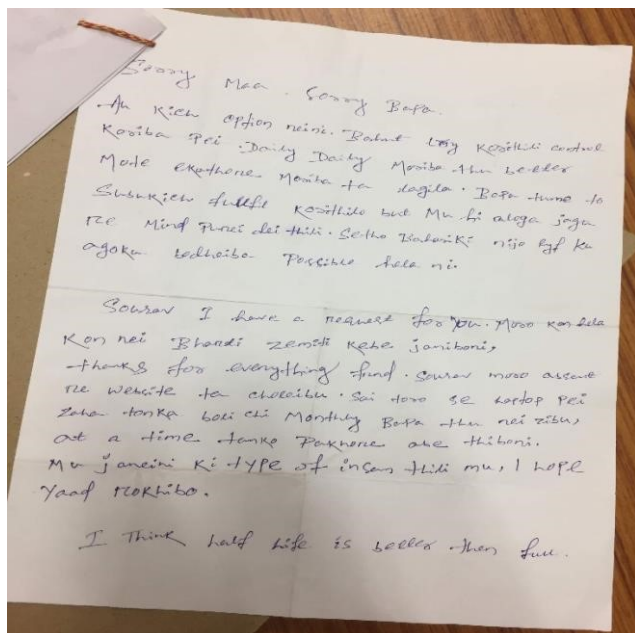 Sorry Maa. Sorry Bapa.
Au kich option neini. Bahut try karithili control
Kariba pei. Daily Daily Moriba thu better
Mote ekathare Moriba ta lagila. Bapa tume to
Sabukich fullfil karithila but Mu hi aloga jaga
re Mind punei dei thili. Setho Bahariki nijo lyf ku
agoku badheiba possible hela ni.
Sourav I have a request for you. Moro kan hela
Kon nei Bhardi zemiti kebe janiboni,
thanks for everything fund. Sourav moro
re website ta chaleibu. Sai toro se laptop pei
zaha tanka baki chi Monthly Bapa thu nei zibu,
at a time tanka Pakhare abe thiboni.
Mu janeini ki type of insan thili mu, I hope
Yaad Rokhibo.
I Think half life is better then full.